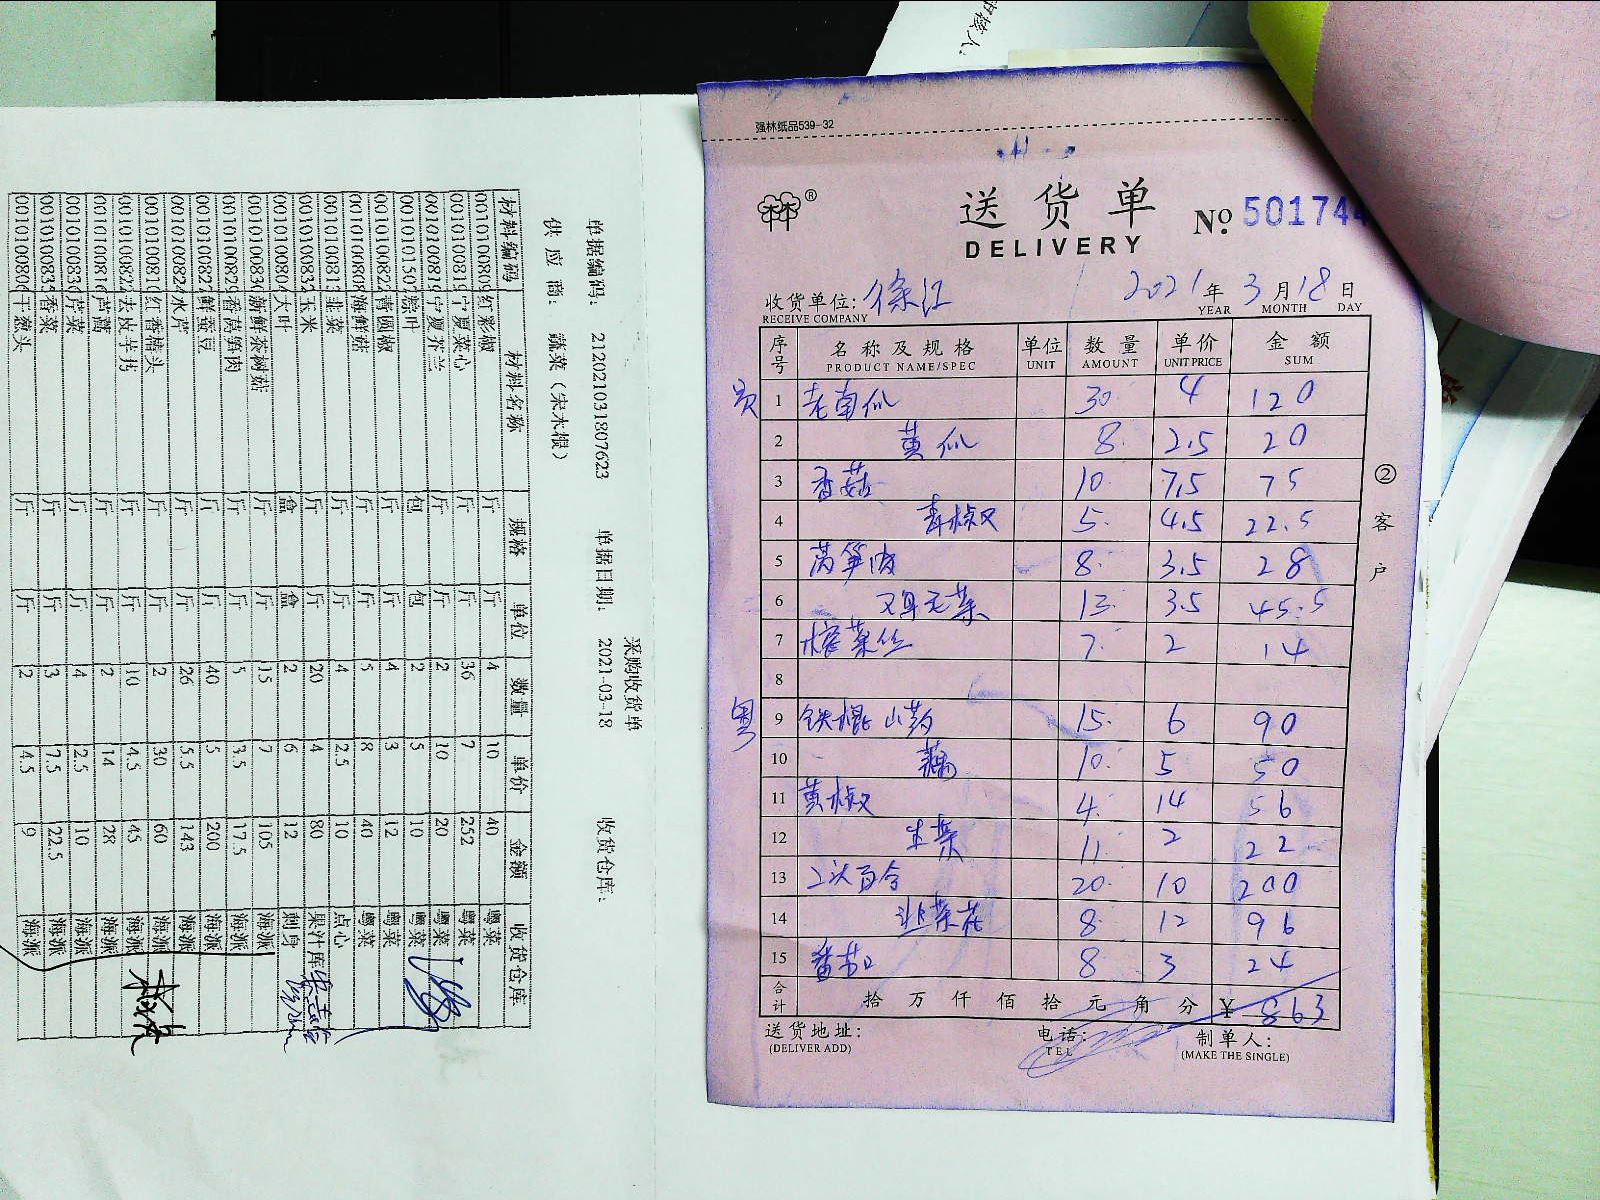 采购收货单
单据编码: 212021031807623 单据日期: 2021-03-18 收货仓库:
供应商: 蔬菜（宋木根）
材料编码 材料名称 规格 单位 数量 单价 金额 收货仓库
001010080 红彩椒 斤 斤 4 10 40 粤菜
001010081 宁夏菜心 斤 斤 36 7 252 粤菜
001010081 宁夏芥兰 斤 斤 2 10 20 粤菜
001010150 粽叶 包 包 2 5 10 粤菜
001010082 青圆椒 斤 斤 4 3 12 粤菜
001010080 海鲜菇 斤 斤 5 8 40 粤菜
001010081 韭菜 斤 斤 4 2.5 10 点心
001010083 玉米 斤 斤 20 4 80 果汁库
001010080 大叶 盒 盒 2 6 12 刺身
001010083 新鲜茶树菇 斤 斤 15 7 105 海派
001010082 香莴笋肉 斤 斤 5 3.5 17.5 海派
001010082 鲜蚕豆 斤 斤 40 5 200 海派
001010082 水芹 斤 斤 26 5.5 143 海派
001010081 红香椿头 斤 斤 2 30 60 海派
001010082 去皮芋艿 斤 斤 10 4.5 45 海派
001010081 芦蒿 斤 斤 2 14 28 海派
001010083 芹菜 斤 斤 4 2.5 10 海派
001010083 香菜 斤 斤 3 7.5 22.5 海派
001010080 干葱头 斤 斤 2 4.5 9 海派
强林纸品539-32
林®
送货单
DELIVERY
No. 501744
收货单位: 徐汇 2021年3月18日
RECEIVE COMPANY YEAR MONTH DAY
序号 名称及规格 单位 数量 单价 金额
PRODUCT NAME/SPEC UNIT AMOUNT UNIT PRICE SUM
1 老南瓜 30 4 120
2 黄瓜 8 2.5 20
3 香菇 10 7.5 75
4 青椒 5 4.5 22.5
5 莴笋 8 3.5 28
6 鸡毛菜 13 3.5 45.5
7 榨菜丝 7 2 14
8
粤
9 铁棍山药 15 6 90
10 藕 10 5 50
11 黄椒 4 14 56
12 生菜 11 2 22
13 百合 20 10 200
14 韭菜花 8 12 96
15 番茄 8 3 24
合计 拾万仟佰拾元角分 ¥ 863
送货地址: 电话: 制单人:
(DELIVER ADD) TEL (MAKE THE SINGLE)
②客户